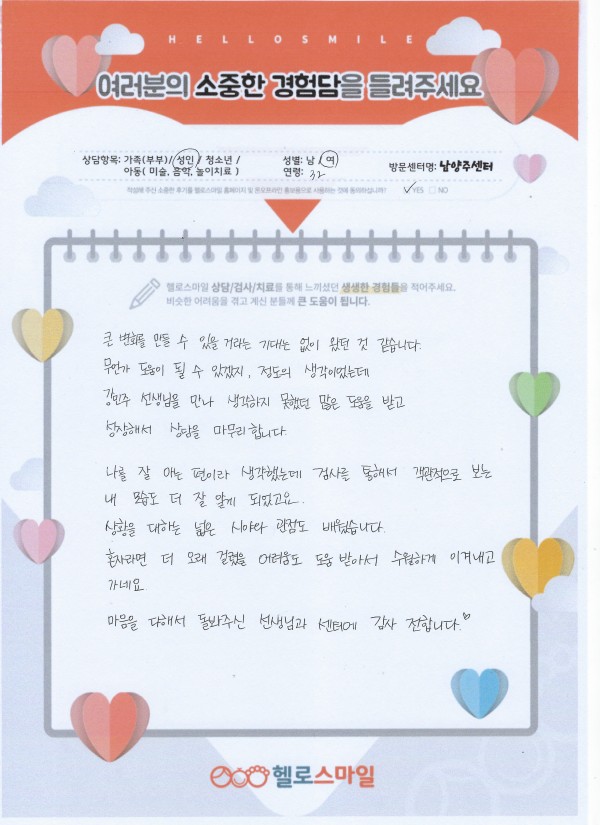 HELLOSMILE
여러분의 소중한 경험담을 들려주세요
상담항목: 가족(부부)/ 성인 / 청소년 /
아동( 미술, 음악, 놀이치료 )
성별: 남 / 여
연령: 32
방문센터명: 남양주센터
작성해 주신 소중한 후기를 헬로스마일 홈페이지 및 온오프라인 홍보용으로 사용하는 것에 동의하십니까? ✓YES □ NO
헬로스마일 상담/검사/치료를 통해 느끼셨던 생생한 경험들을 적어주세요.
비슷한 어려움을 겪고 계신 분들께 큰 도움이 됩니다.
큰 변화를 만들 수 있을 거라는 기대는 없이 왔던 것 같습니다.
무언가 도움이 될 수 있겠지, 정도의 생각이었는데
강민주 선생님을 만나 생각하지 못했던 많은 도움을 받고
성장해서 상담을 마무리합니다.
나를 잘 아는 편이라 생각했는데 검사를 통해서 객관적으로 보는
내 모습도 더 잘 알게 되었고요.
상황을 대하는 넓은 시야와 관점도 배웠습니다.
혼자라면 더 오래 걸렸을 어려움도 도움 받아서 수월하게 이겨내고
가네요
마음을 다해서 돌봐주신 선생님과 센터에 감사 전합니다.♡
헬로스마일